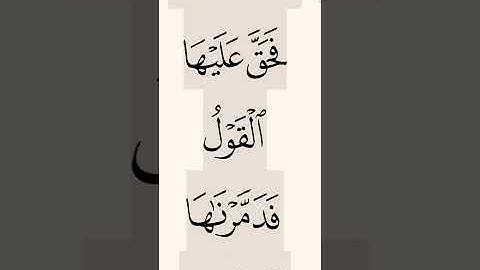 فَحَقَّ عَلَيْهَا
ٱلْقَوْلُ
فَدَمَّرْنَٰهَا